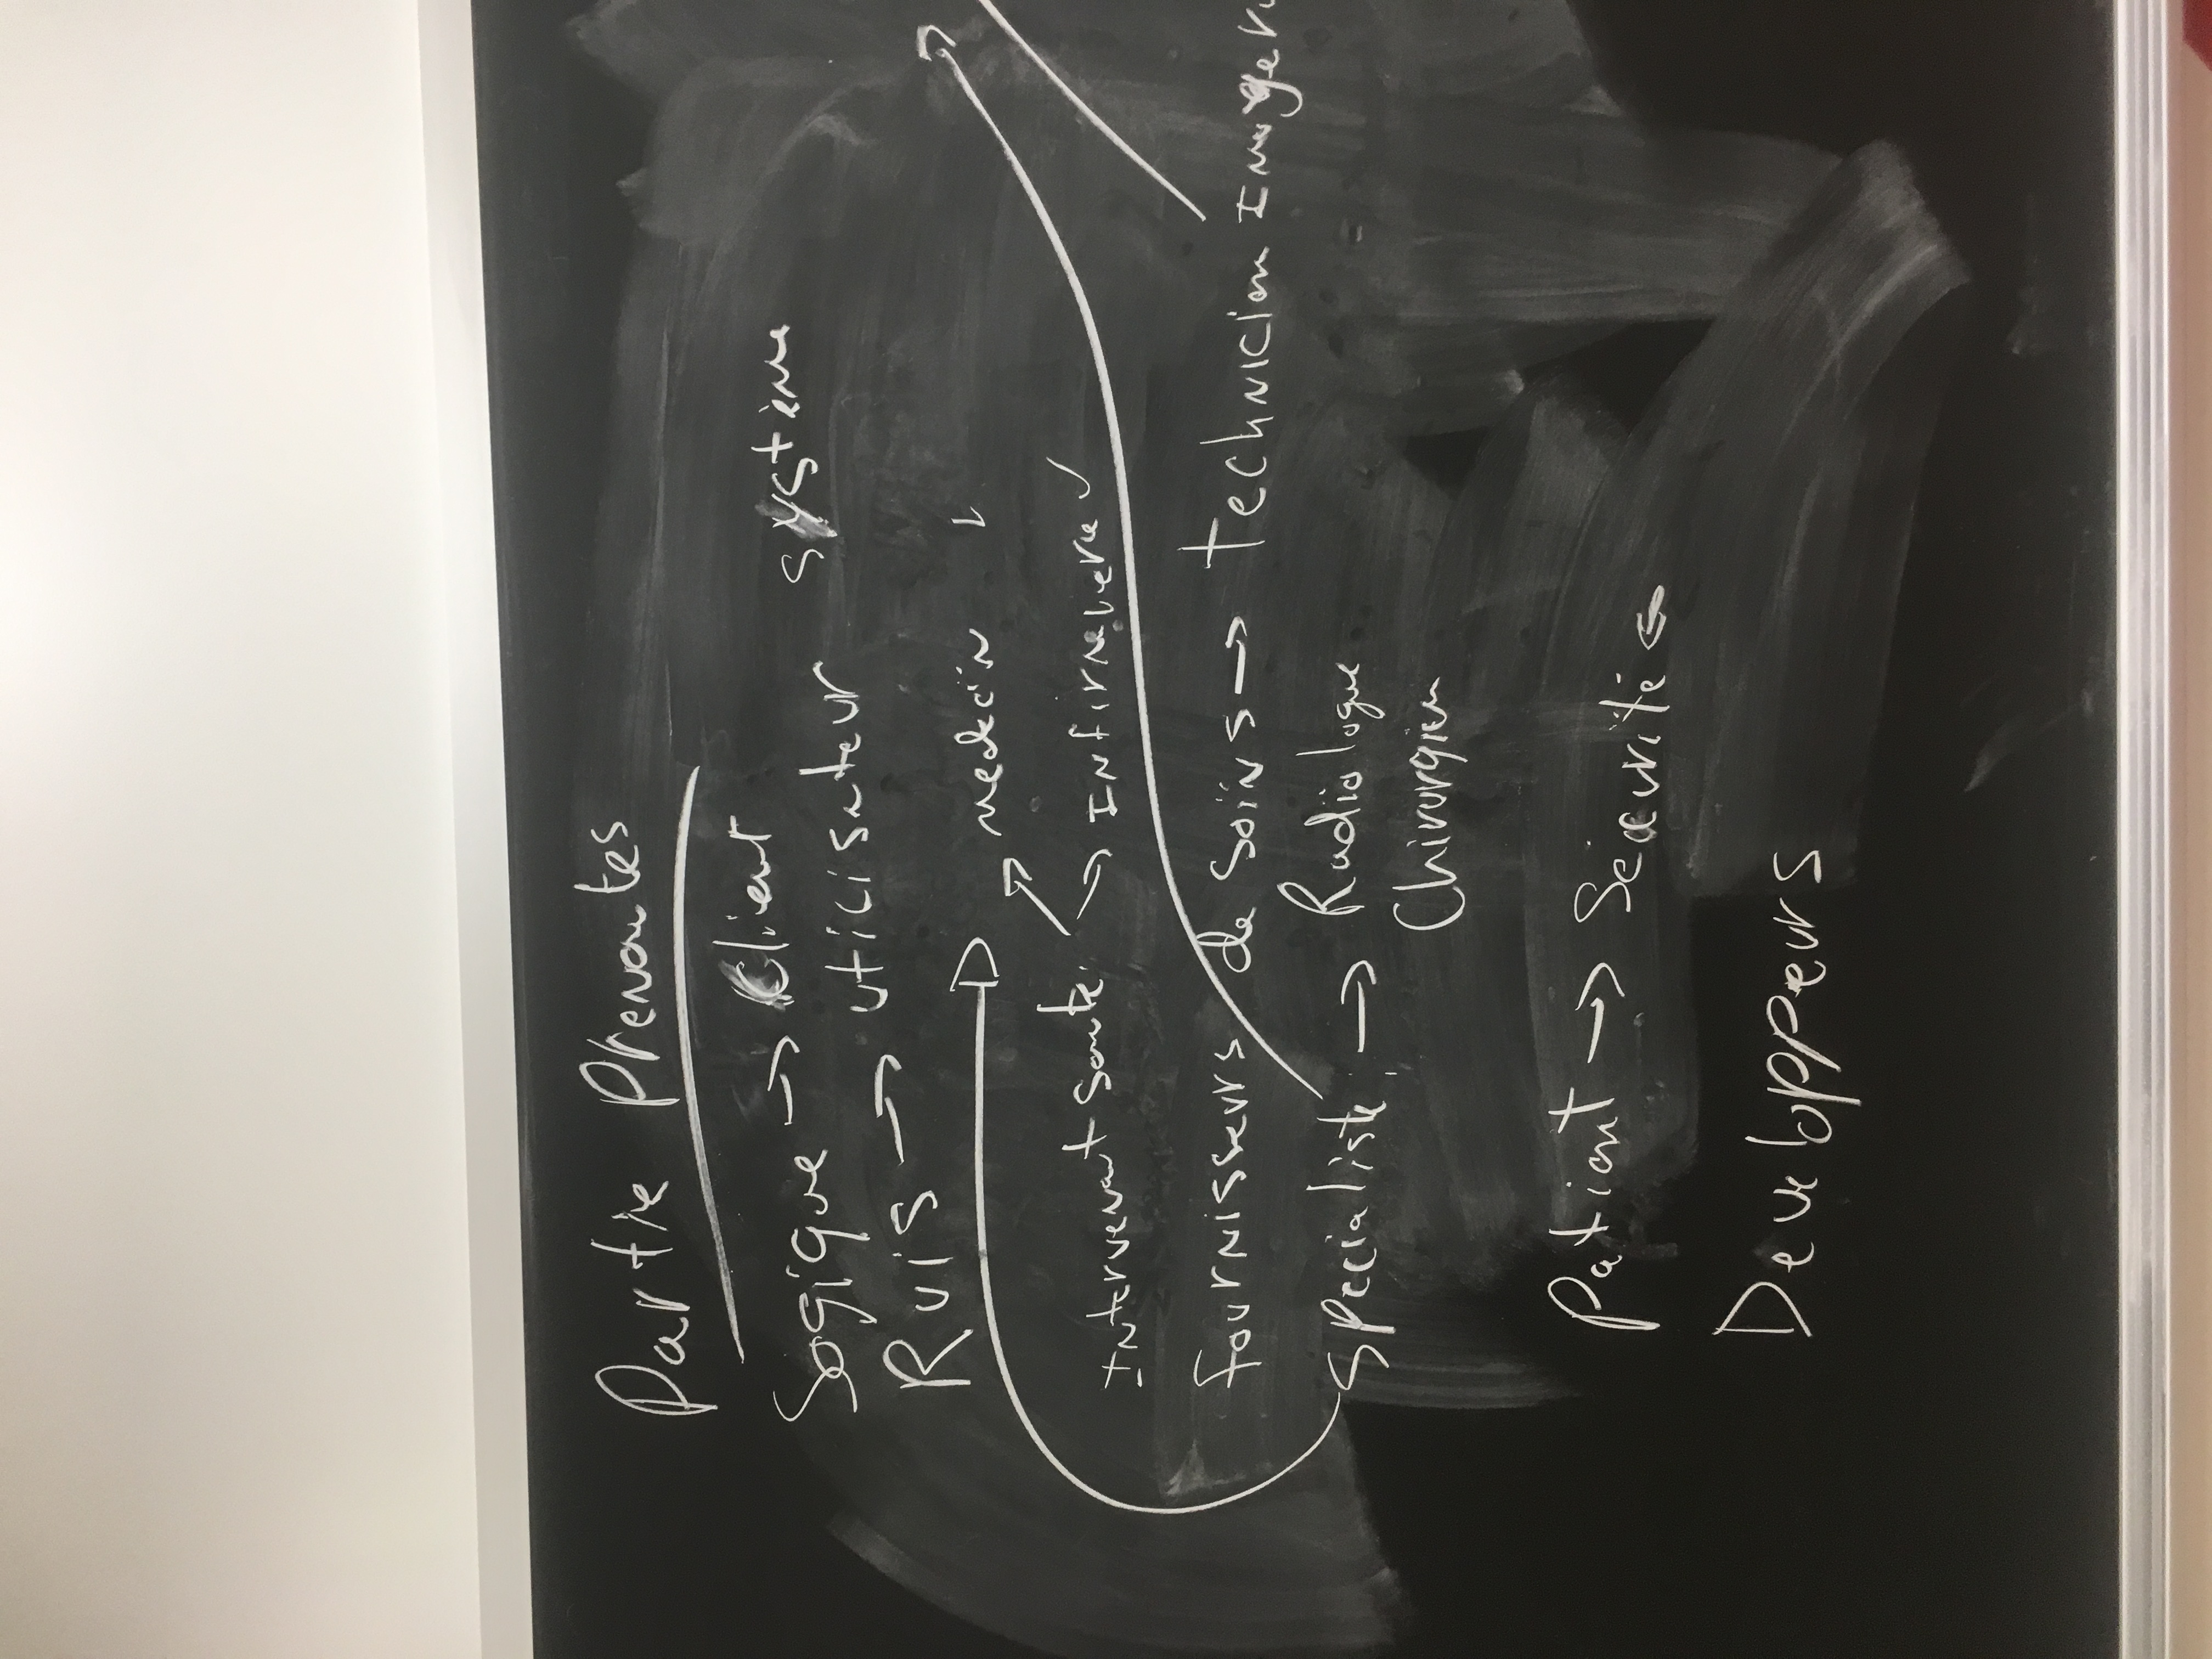 Partie Prenantes
Sogique → Client
Ruis → utilisateur système
médecin
Intervenant Santé → Infirmière ✓
fournisseurs de soins → technicien Imagerie
Specialiste → Radiologue
Chirurgien
Patient → Sécurité
Developpeurs